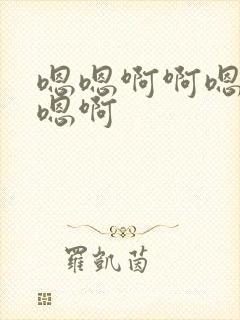 嗯嗯啊啊嗯
嗯啊
羅凱茵